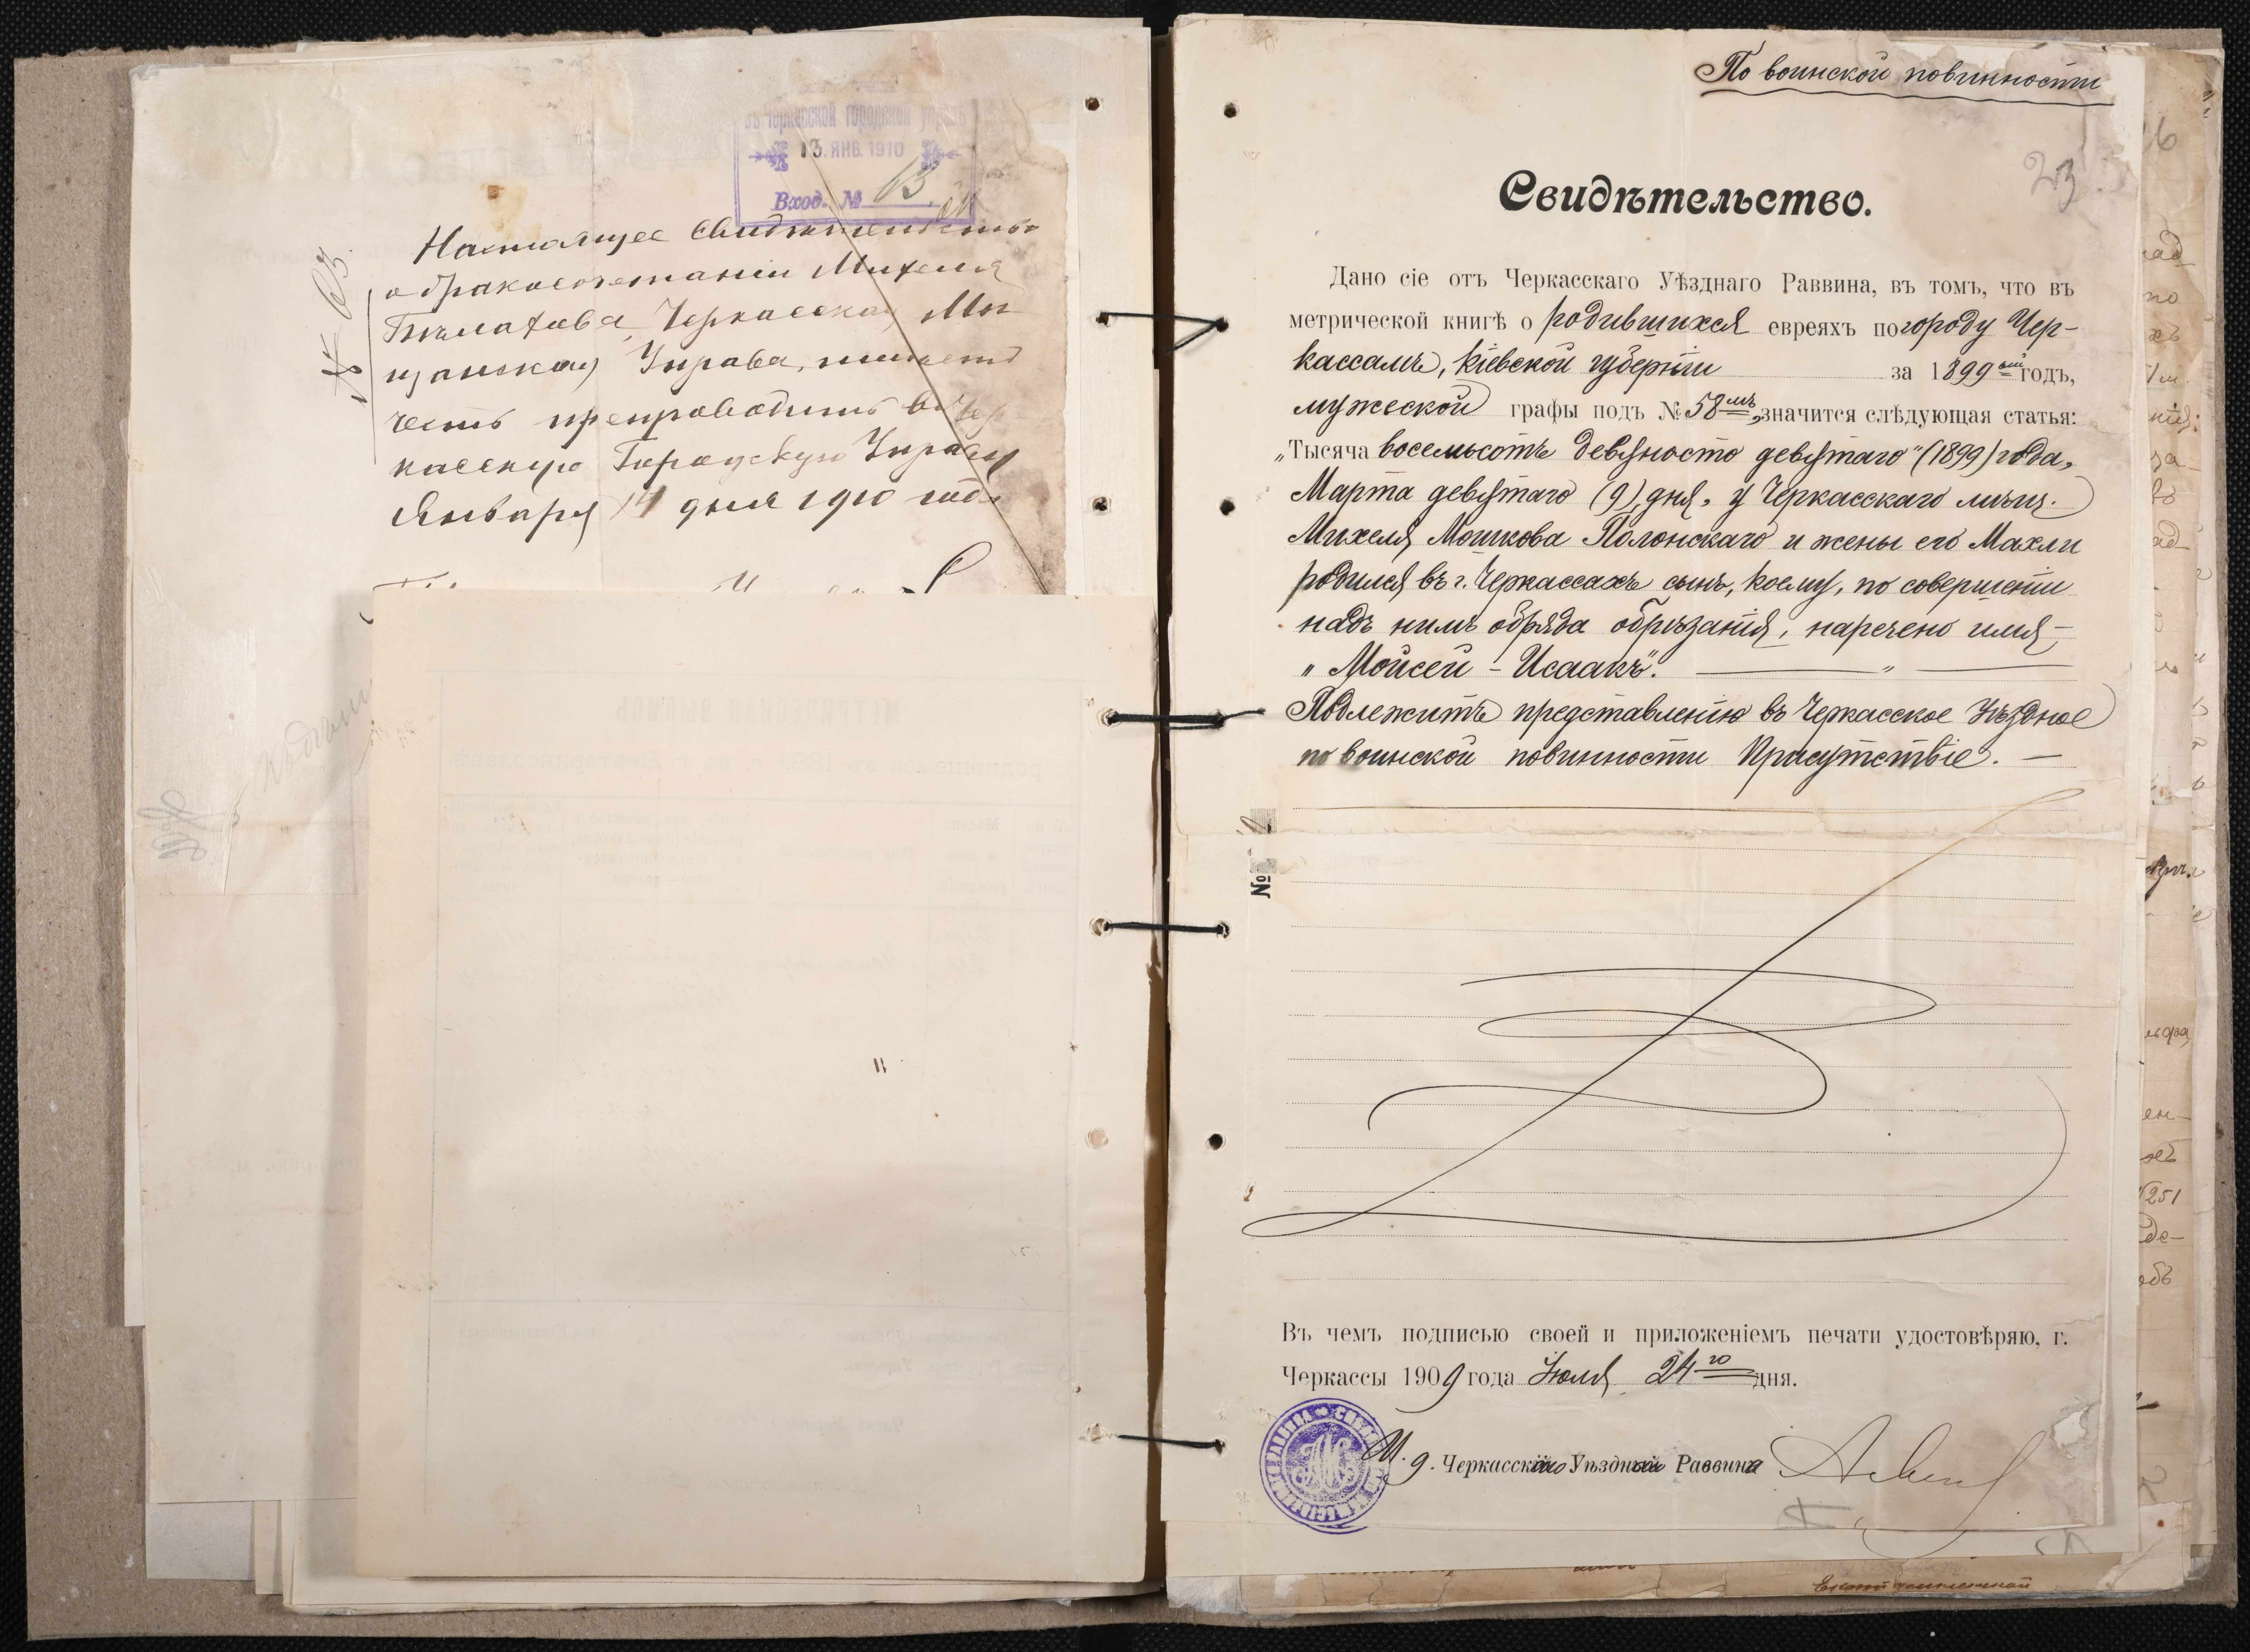 въ Черкасской городской управѣ
13. ЯНВ. 1910
Вход. № 13
№ 63.
Настоящее Свидѣтельство
о бракосочетаніи Михеля
Черкасская Мѣ
щанская Управа, имѣетъ
честь препроводить въ Чер
касскую Городскую Управу
Января 11 дня 1910 года
По воинской повинности
23
Свидѣтельство.
Дано сіе отъ Черкасскаго Уѣзднаго Раввина, въ томъ, что въ
метрической книгѣ о родившихся евреяхъ по городу Чер-
кассамъ, Кіевской губерніи за 1899ый годъ,
мужеской графы подъ № 58мъ, значится слѣдующая статья:
„Тысяча восемьсотъ девяносто девятаго" (1899) года,
Марта девятаго (9) дня, у Черкасскаго мѣщ.
Михеля Мошкова Полонскаго и жены его Махли
родился въ г. Черкассахъ сынъ, коему, по совершеніи
надъ нимъ обряда обрѣзанія, наречено имя –
„Мойсей - Исаакъ". — „ —
Подлежитъ представленію въ Черкасское Уѣздное
по воинской повинности Присутствіе. —
№
Въ чемъ подписью своей и приложеніемъ печати удостовѣряю, г.
Черкассы 1909 года Іюля 24го дня.
И. д. Черкасскаго Уѣзднаго Раввина